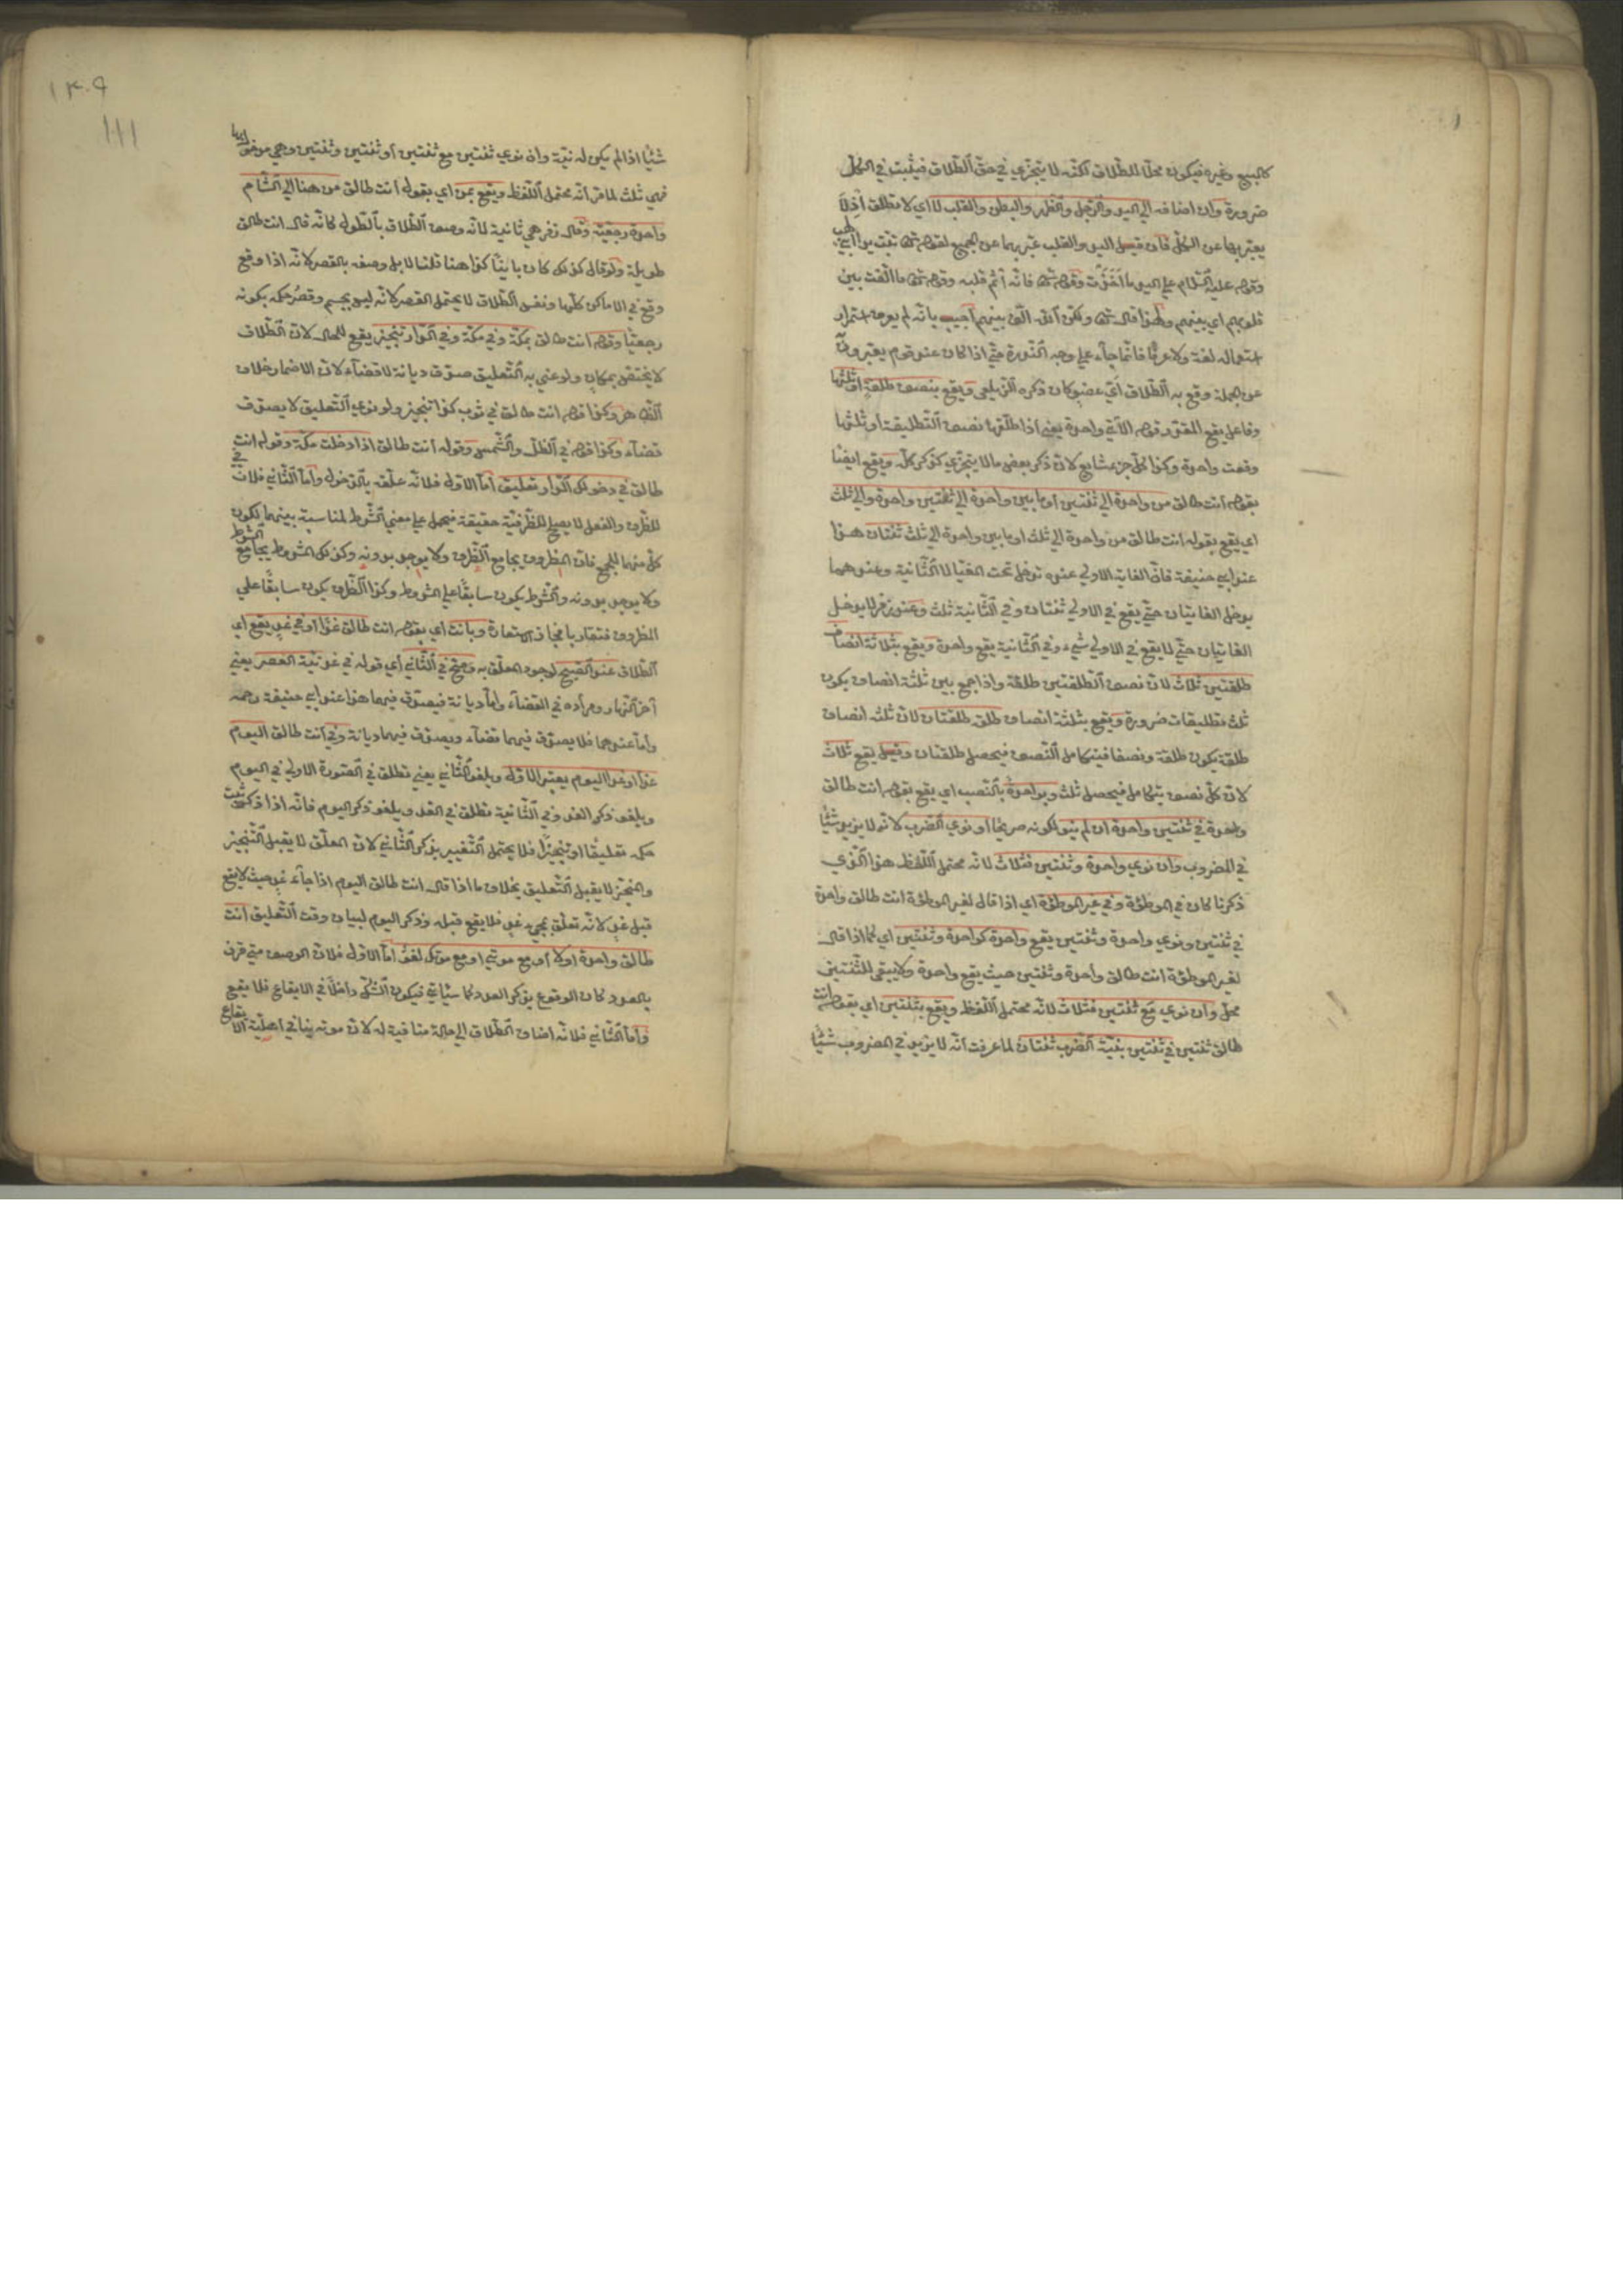 كالبيع وغيره فيكون محلا للطلاق لكنه لا يتجزي في حق الطلاق فيثبت في الكل
ضرورة وان اضافه الي اليد والرجل والظهر والبطن والقلب لا اي لا تطلق اذ لا
يعبر بها عن الكل فان قيل اليد والقلب عبر بهما عن الجميع لقوله تعالى تبت يدا ابي لهب
وقوله عليه السلام علي اليد ما اخذت وقوله تعالى فانه اثم قلبه وقوله تعالى ما الفت بين
قلوبهم اي بينهم ولهذا قال تعالى ولكن الله الف بينهم اجيب بانه لم يعرف استمرار
استعماله لغة ولا عرفا فانما جاء علي وجه الندرة حتي اذا كان عند قوم يعبرون
عن الجملة وقع به الطلاق اي عضو كان ذكره الزيلعي ويقع بنصف طلقة او ثلثها
وفاعل يقع المقدر قوله الاتي واحدة يعني اذا طلقها نصف التطليقة او ثلثها
وقعت واحدة وكذا كل جزء شايع لان ذكر بعض ما لا يتجزي كذكر كله ويقع ايضا
بقوله انت طالق من واحدة الي ثنتين او ما بين واحدة الي ثنتين واحدة والي ثلث
اي يقع بقوله انت طالق من واحدة الي ثلث او ما بين واحدة الي ثلث ثنتان هذا
عند ابي حنيفة فان الغاية الاولي عنده تدخل تحت المغيا لا الثانية وعندهما
يدخل الغايتان حتي يقع في الاولي ثنتان وفي الثانية ثلث وعند زفر لا يدخل
الغايتان حتي لا يقع في الاولي شيء وفي الثانية يقع واحدة ويقع بثلاثة انصاف
طلقتين ثلاث لان نصف الطلقتين طلقة واذا جمع بين ثلثة انصاف يكون
ثلث تطليقات ضرورة ويقع بثلثة انصاف طلق طلقتان لان ثلثه انصاف
طلقة يكون طلقة ونصفا فيتكامل النصف فيحصل طلقتان وقيل يقع ثلاث
لان كل نصف يتكامل فيحصل ثلث وبواحدة بالنصب اي يقع بقوله انت طالق
واحدة في ثنتين واحدة ان لم ينو لكونه صريحا او نوي الضرب لانه لا يزيد شيئا
في المضروب وان نوي واحدة وثنتين فثلاث لانه محتمل اللفظ هذا الذي
ذكرنا كان في الموطؤة وفي غير الموطؤة اي اذا قال لغير الموطؤة انت طالق واحدة
في ثنتين ونوي واحدة وثنتين يقع واحدة كواحدة وثنتين اي كما اذا قال
لغير الموطؤة انت طالق واحدة وثنتين حيث يقع واحدة ولا يبقي للثنتين
محل وان نوي مع ثنتين فثلاث لانه محتمل اللفظ ويقع بثنتين اي بقوله انت
طالق ثنتين في ثنتين بنية الضرب ثنتان لما عرفت انه لا يزيد في المضروب شيئا
١٣٠٩
١١١
شيئا اذا لم يكن له نية وان نوي ثنتين مع ثنتين او ثنتين وثنتين وهي مدخول بها
فهي ثلث لما مر انه محتمل اللفظ ويقع بمن اي بقوله انت طالق من هنا الي الشام
واحدة رجعية وقال زفر هي ثانية لانه وصف الطلاق بالطول كانه قال انت طالق
طويلة ولو قال كذلك كان باينا كذا هنا قلنا لا بل وصفه بالقصر لانه اذا وقع
وقع في الاماكن كلها ونفس الطلاق لا يحتمل القصر لانه ليس بجسم وقصر حكمه بكونه
رجعيا وقوله انت طالق بمكة وفي مكة وفي الدار تنجيز يقع للحال لان الطلاق
لا يختص بمكان ولو عني به التعليق صدق ديانة لا قضاء لان الاضمار خلاف
الظاهر وكذا قوله انت طالق في ثوب كذا تنجيز ولو نوي التعليق لا يصدق
قضاء وكذا قوله في الظل والشمس وقوله انت طالق اذا دخلت مكة وقوله انت
طالق في دخولك الدار تعليق اما الاول فلانه علقه بالدخول واما الثاني فلان في
للظرف والفعل لا يصلح للظرفية حقيقة فيحمل علي معني الشرط لمناسبة بينهما لكون
كل منهما للجمع فان المظروف يجامع الظرف ولا يوجد بدونه وكذلك المشروط يجامع الشرط
ولا يوجد بدونه والشرط يكون سابقا علي المشروط وكذا الظرف يكون سابقا علي
المظروف فتقاربا فجاز الاستعارة وبانت اي بقوله انت طالق غدا او في غد يقع اي
الطلاق عند الصبح لوجود المعلق به وصح في الثاني اي قوله في غد نية العصر يعني
آخر النهار ومراده في القضاء واما ديانة فيصدق فيهما هذا عند ابي حنيفة رحمه
واما عندهما فلا يصدق فيهما قضاء ويصدق فيهما ديانة وفي انت طالق اليوم
غدا او غدا اليوم يعتبر الاول ويلغو الثاني يعني تطلق في الصورة الاولي في اليوم
ويلغو ذكر الغد وفي الثانية تطلق في الغد ويلغو ذكر اليوم فانه اذا ذكره ثبت
حكمه تعليقا او تنجيزا فلا يحتمل التغيير بذكر الثاني لان المعلق لا يقبل التنجيز
والمنجز لا يقبل التعليق بخلاف ما اذا قال انت طالق اليوم اذا جاء غد حيث لا يقع
قبل غد لانه تعلق بمجيء غد فلا يقع قبله وذكر اليوم لبيان وقت التعليق انت
طالق واحدة اولا او مع موتي او مع موتك لغو اما الاول فلان الوصف متي قرن
بالعدد كان الوقوع بذكر العدد كما سيأتي فيكون الشك داخلا في الايقاع فلا يقع
واما الثاني فلانه اضاف الطلاق الي حالة منافية له لان موته ينافي اهلية الايقاع